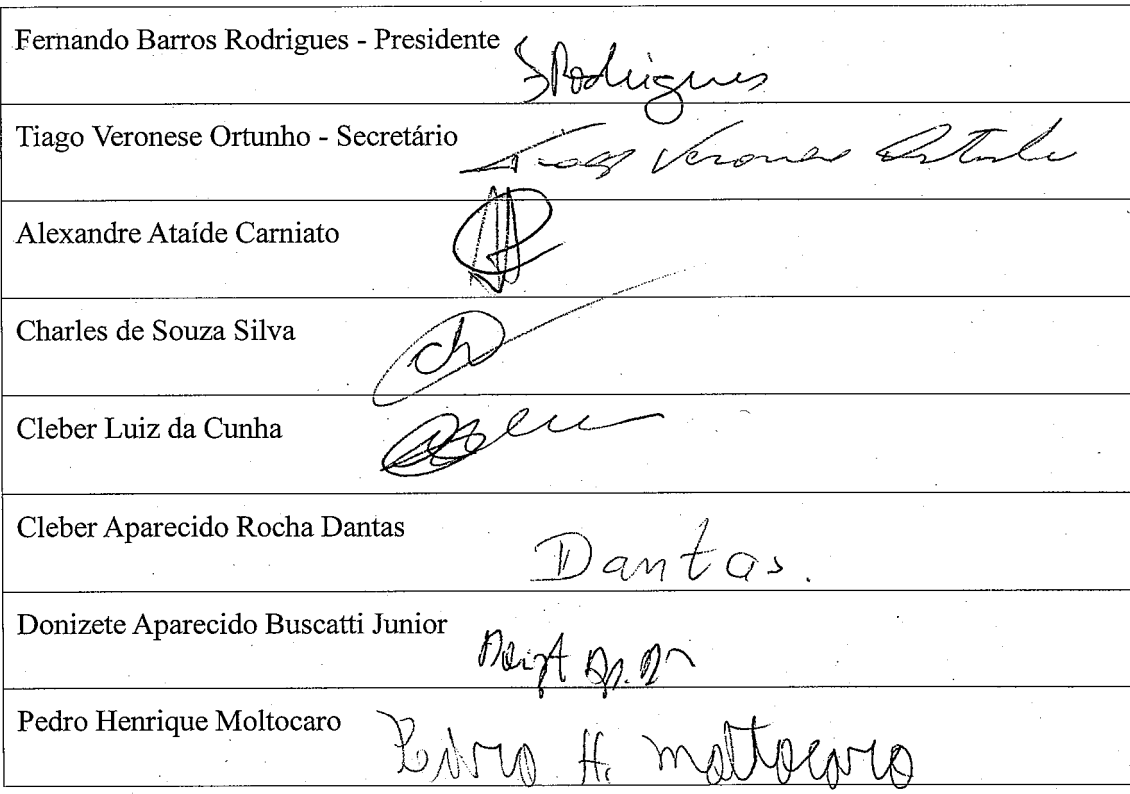 Fernando Barros Rodrigues - Presidente
Rodrigues
Tiago Veronese Ortunho - Secretário
Tiago Veronese Ortunho
Alexandre Ataíde Carniato
Charles de Souza Silva
ch
Cleber Luiz da Cunha
Cleber Aparecido Rocha Dantas
Dantas.
Donizete Aparecido Buscatti Junior
Pedro Henrique Moltocaro
Pedro H. Moltocaro